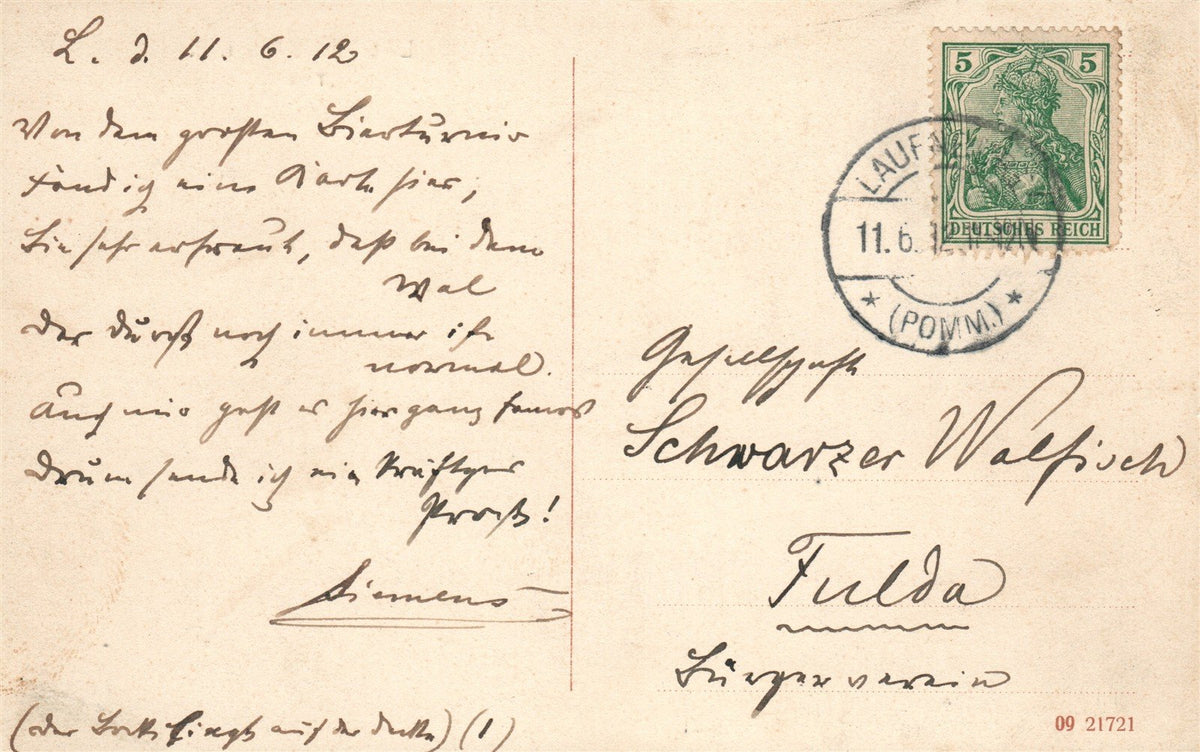 L. d. 11. 6. 12
Von dem großen Bierturnir
fand ich eine Karte hier,
Bin sehr erfreut, daß bei dem
Wal
der Durst noch immer ist
normal.
Auch mir geht es hier ganz famos
Drum sende ich ein kräftges
Prost!
Siemens
(der Bock auf der) (1)
5 5
DEUTSCHES REICH
LAUF
11. 6. 12
* (POMM.) *
Gesellschaft
Schwarzer Walfisch
Fulda
Bürgerverein
09 21721